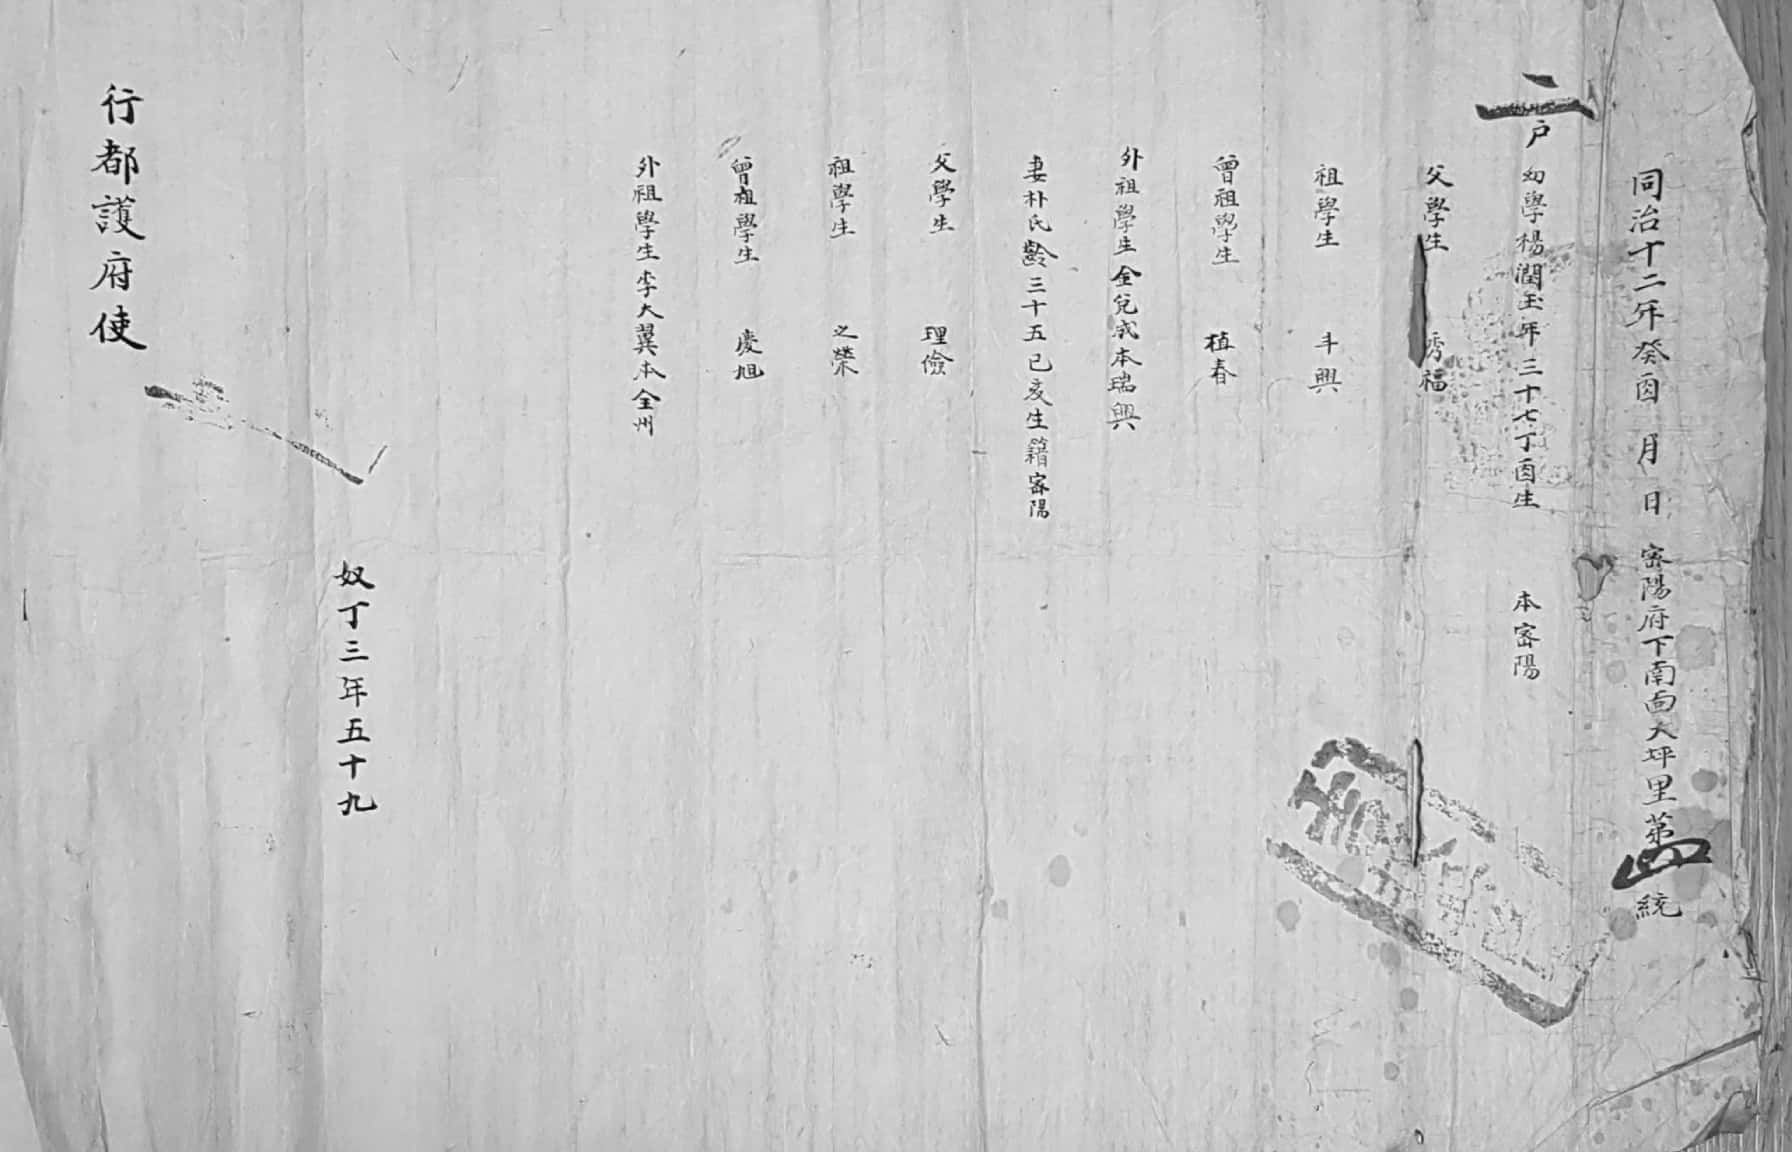 同治十二年癸酉 月 日 密陽府下南面大坪里第四統
二戶 幼學楊潤玉年三十七丁酉生 本密陽
父學生 秀福
祖學生 斗興
曾祖學生 植春
外祖學生金兌成本瑞興
妻朴氏齡三十五己亥生籍密陽
父學生 理儉
祖學生 之榮
曾祖學生 慶旭
外祖學生李大翼本全州
奴丁三年五十九
行都護府使